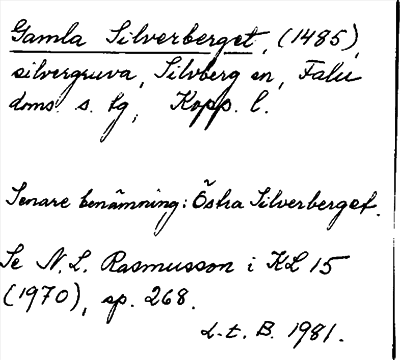 Gamla Silverberget, (1485),
silvergruva, Silvberg sn, Falu
doms. s. lg; Kopp. l.
Senare benämning: Östra Silverberget.
Se N.L. Rasmusson i KL 15
(1970), sp. 268.
L-t. B. 1981.